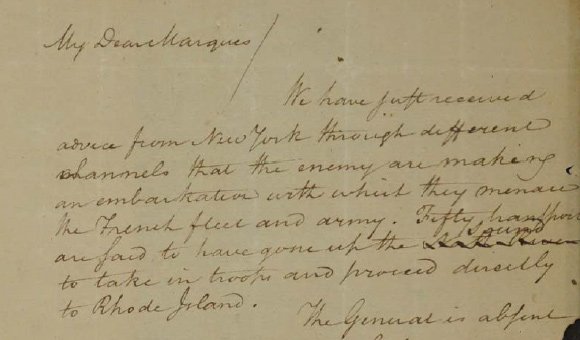 My Dear Marquis
We have just received
advice from New York through different
channels that the enemy are making
an embarkation with which they menace
the French fleet and army. Fifty transports
are said to have gone up the Sound
to take in troops and proceed directly
to Rhode Island.
The General is absent